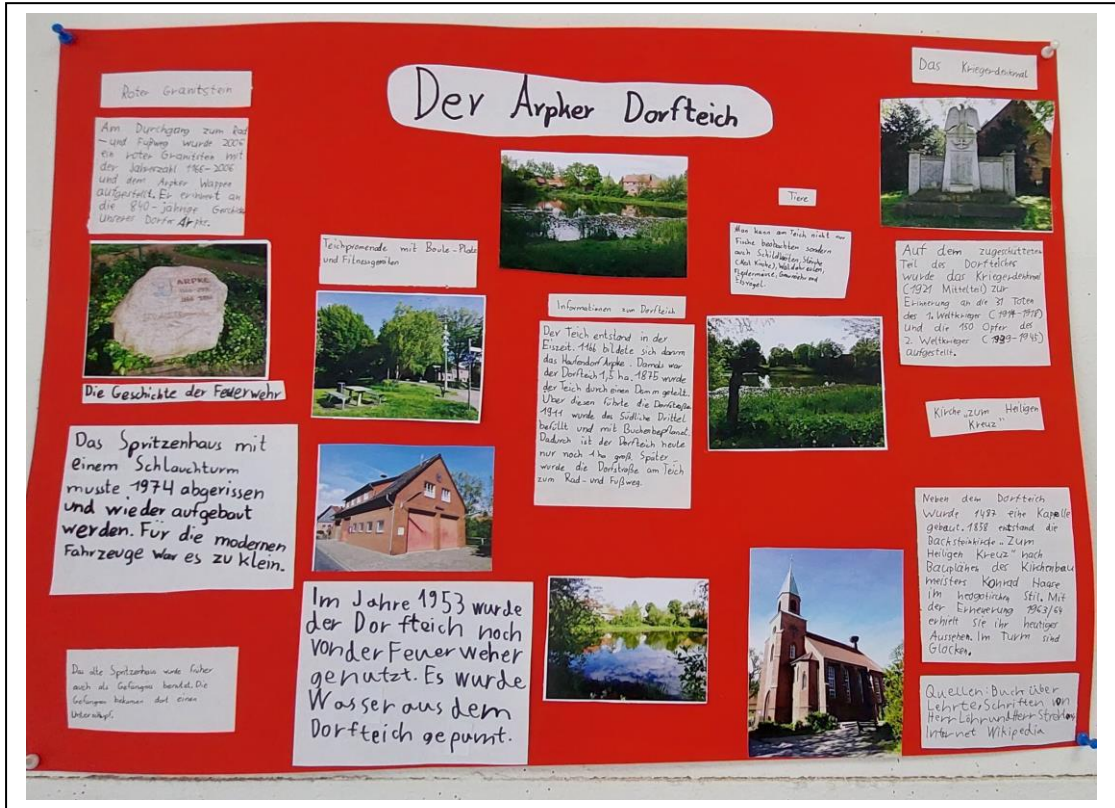 Der Arpker Dorfteich
Roter Granitstein
Am Durchgang zum Rad
-und Fußweg wurde 2006
ein roter Granitsten mit
der Jahreszahl 1166-2006
und dem Arpker Wappen
aufgestellt. Er erinnert an
die 840-jährige Geschichte
unseres Dorfes Arpke.
ARPKE
Die Geschichte der Feuerwehr
Das Spritzenhaus mit
einem Schlauchturm
musste 1974 abgerissen
und wieder aufgebaut
werden. Für die modernen
Fahrzeuge war es zu klein.
Das alte Spritzenhaus wurde früher
auch als Gefängnis benutzt. Die
Gefangen bekamen dort einen
Teichpromenade mit Boule-Platz
und Fitnessgeräten
Im Jahre 1953 wurde
der Dorfteich noch
von der Feuerweher
genutzt. Es wurde
Wasser aus dem
Dorfteich gepumt.
Informationen zum Dorfteich
Der Teich entstand in der
Eiszeit. 1166 bildete sich darum
das Haufendorf Arpke. Damals war
der Dorfteich 1,5 ha. 1875 wurde
der Teich durch einen Damm geteilt.
Über diesen führte die Dorfstraße
1911 wurde das Südliche Drittel
befüllt und mit Buchen bepflanzt.
Dadurch ist der Dorfteich heute
nur noch 1 ha groß. Später
wurde die Dorfstraße am Teich
zum Rad- und Fußweg.
Tiere
Man kann am Teich nicht nur
Fische beobachten sondern
auch Schildkröten, Störche
Fledermäuse, Graureiher und
Eisvogel.
Das Kriegerdenkmal
Auf dem zugeschütteten
Teil des Dorfteiches
wurde das Kriegerdenkmal
(1921 Mittelteil) zur
Erinnerung an die 31 Toten
des 1. Weltkrieger (1914-1918)
und die 150 Opfer des
2. Weltkrieger (1939-1945)
aufgestellt.
Kirche „zum Heiligen
Kreuz"
Neben dem Dorfteich
wurde 1487 eine Kapelle
gebaut. 1858 entstand die
Backsteinkirche „Zum
Heiligen Kreuz" nach
Bauplänen des Kirchenbau
meisters Konrad Haase
im neogotischen Stil. Mit
der Erneuerung 1963/64
erhielt sie ihr heutiger
Aussehen. Im Turm sind
Glocken.
Quellen: Buch über
Lehrte, Schriften von
Herr Löhr und Herr
Internet Wikipedia